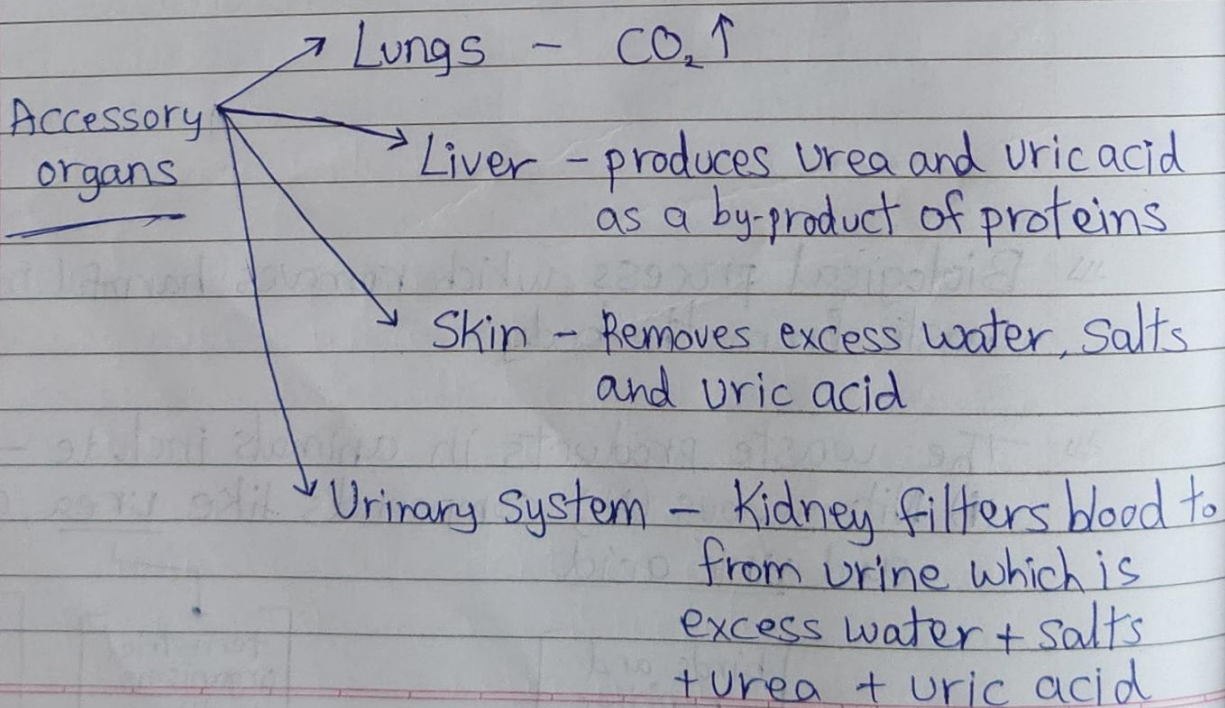 Lungs - CO₂↑
Accessory
organs
Liver - produces urea and uric acid
as a by-product of proteins
Skin - Removes excess water, salts
and uric acid
Urinary system - Kidney filters blood to
from urine which is
excess water + salts
+ urea + uric acid